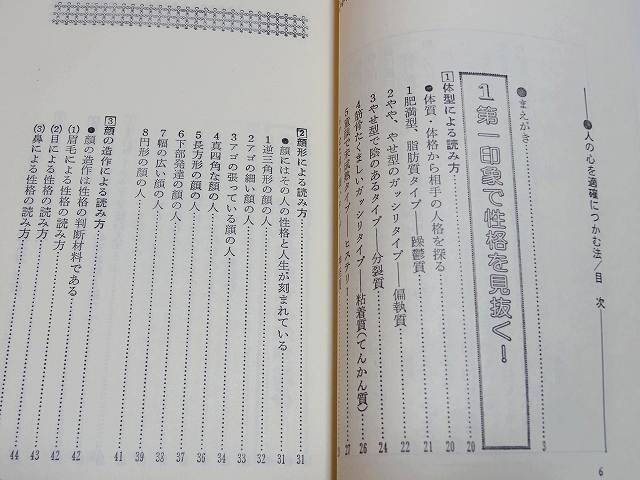 ●人の心を適確につかむ法／目 次
●まえがき 3
1 第一印象で性格を見抜く！
1 体型による読み方 20
●体質・体格から相手の人格を探る 20
1 肥満型、脂肪質タイプ――躁鬱質 21
2 やや、やせ型のガッシリタイプ――偏執質 22
3 やせ型で陰のあるタイプ――分裂質 24
4 筋骨たくましいガッシリタイプ――粘着質(てんかん質) 26
27
6
2 顔形による読み方 31
●顔にはその人の性格と人生が刻まれている 31
1 逆三角形の顔の人 32
2 アゴの細い顔の人 33
3 アゴの張っている顔の人 33
4 真四角な顔の人 34
5 長方形の顔の人 36
6 下部発達の顔の人 37
7 幅の広い顔の人 38
8 円形の顔の人 39
3 顔の造作による読み方 41
●顔の造作は性格の判断材料である 42
(1) 眉毛による性格の読み方 42
(2) 目による性格の読み方 43
(3) 鼻による性格の読み方 44